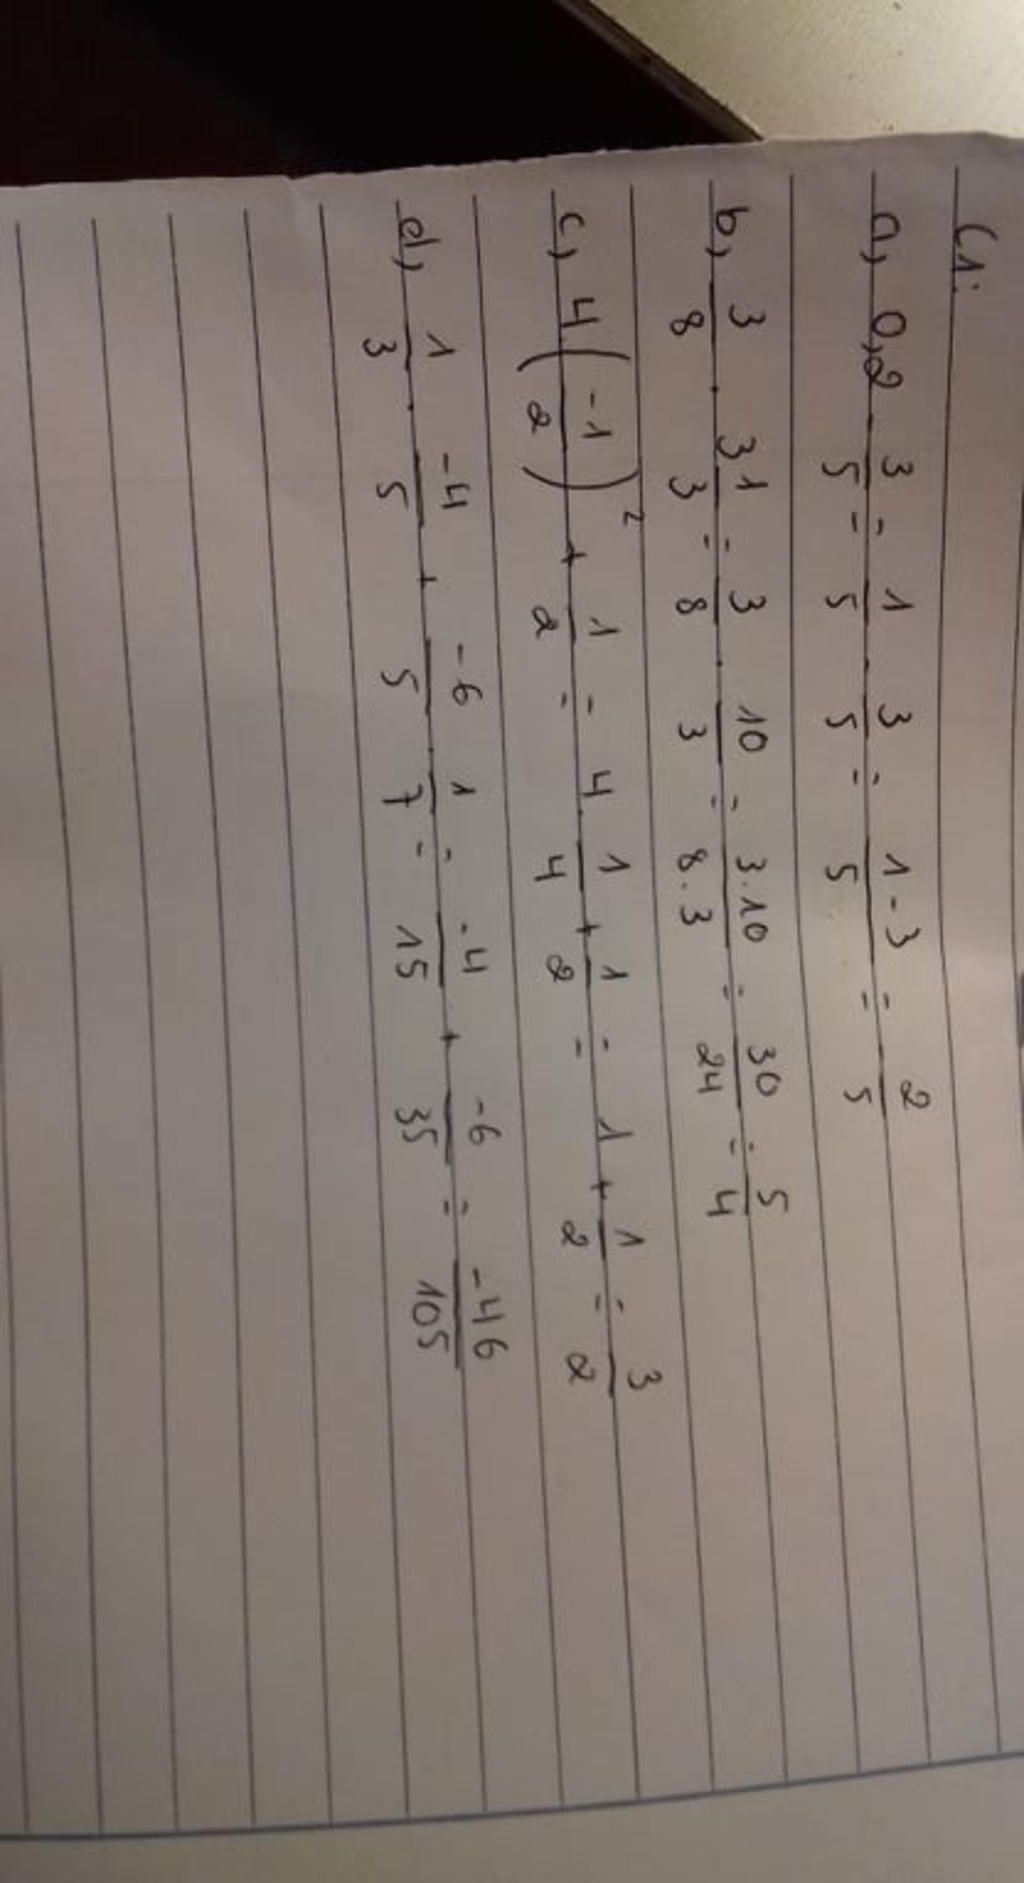 C1:
a, 0,2 - 3/5 = 1/5 - 3/5 = 1-3/5 = 2/5
b, 3/8 . 3 1/3 = 3/8 . 10/3 = 3.10/8.3 = 30/24 = 5/4
c, 4(-1/2)² + 1/2 = 4 . 1/4 + 1/2 = 1 + 1/2 = 3/2
d, 1/3 . -4/5 + -6/5 . 1/7 = -4/15 + -6/35 = -46/105